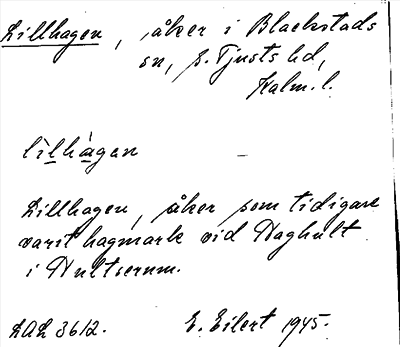 Lillhagen, åker i Blackstads
sn, S. Tjusts hd,
Kalm. l.
lìlhàgen
Lillhagen, åker som tidigare
varit hagmark vid Haghult
i Hultserum.
LAL 3612. E. Eilert 1945.